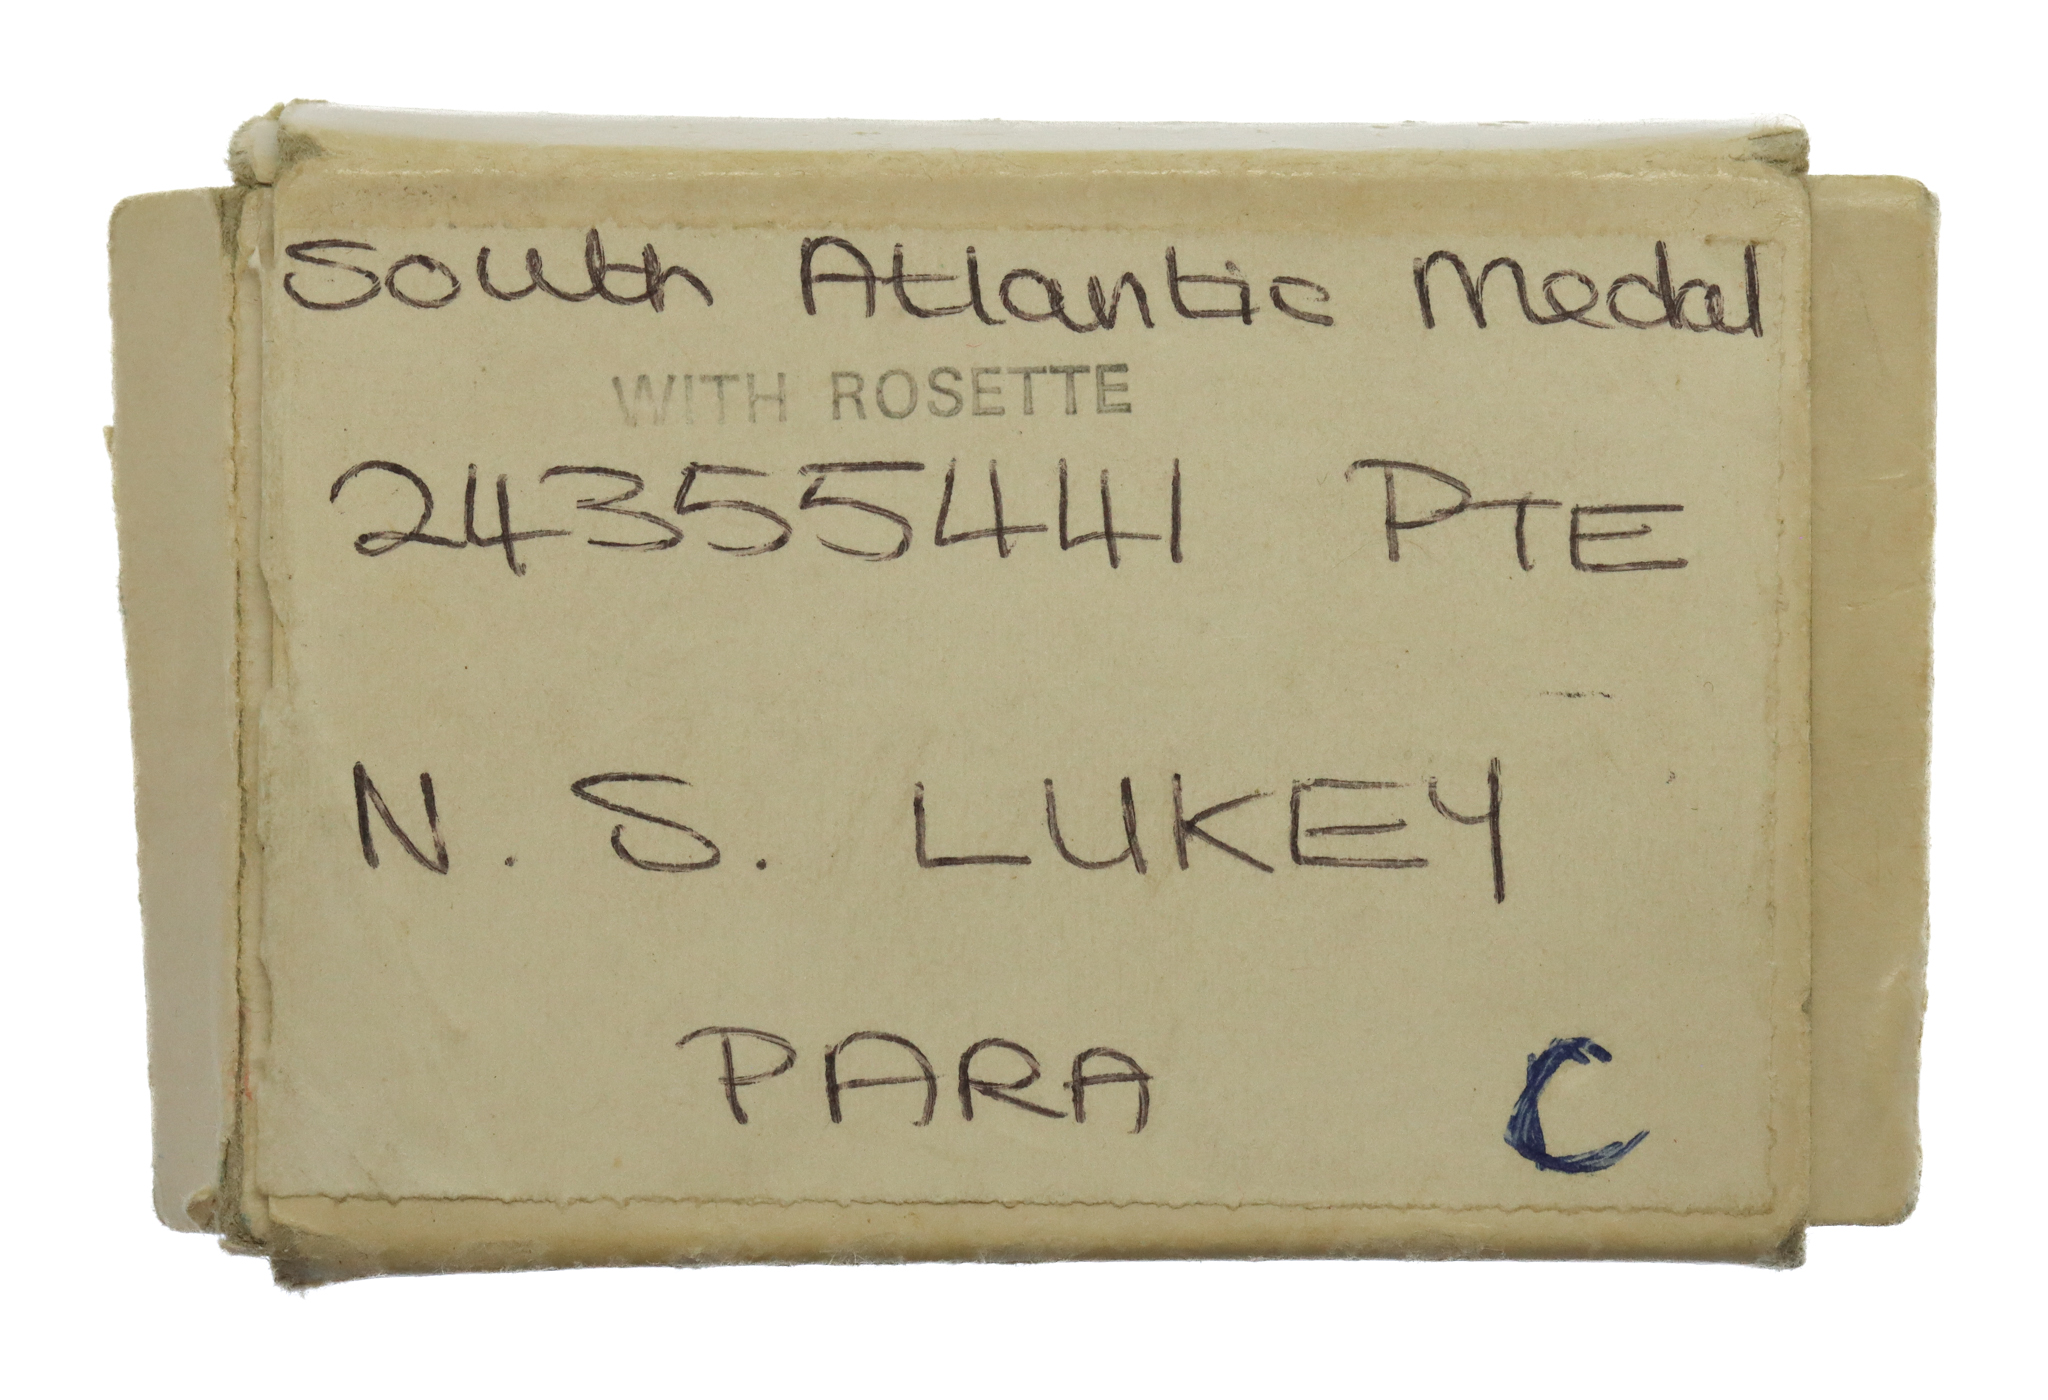 South Atlantic Medal
WITH ROSETTE
24355441 PTE
N. S. LUKEY
PARA C